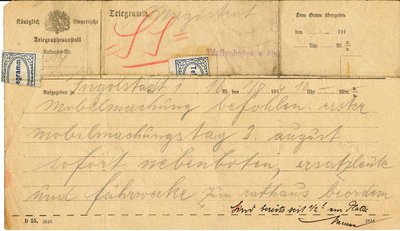 Königlich Bayerische
Telegraphenanstalt
Telegramm
Magistrat
Dem Boten übergeben
Uhr
Pfaffenhofen a. Ilm
Aufgegeben
Ingolstadt 1
W. den
191
Uhr
Mobilmachung befohlen erster
mobilmachungstag 2. august
sofort nebenboten, ersatzleute
und fuhrwerke zum rathaus beordern
Sind bereits seit 1/2 am Platze
D 55. 1913.